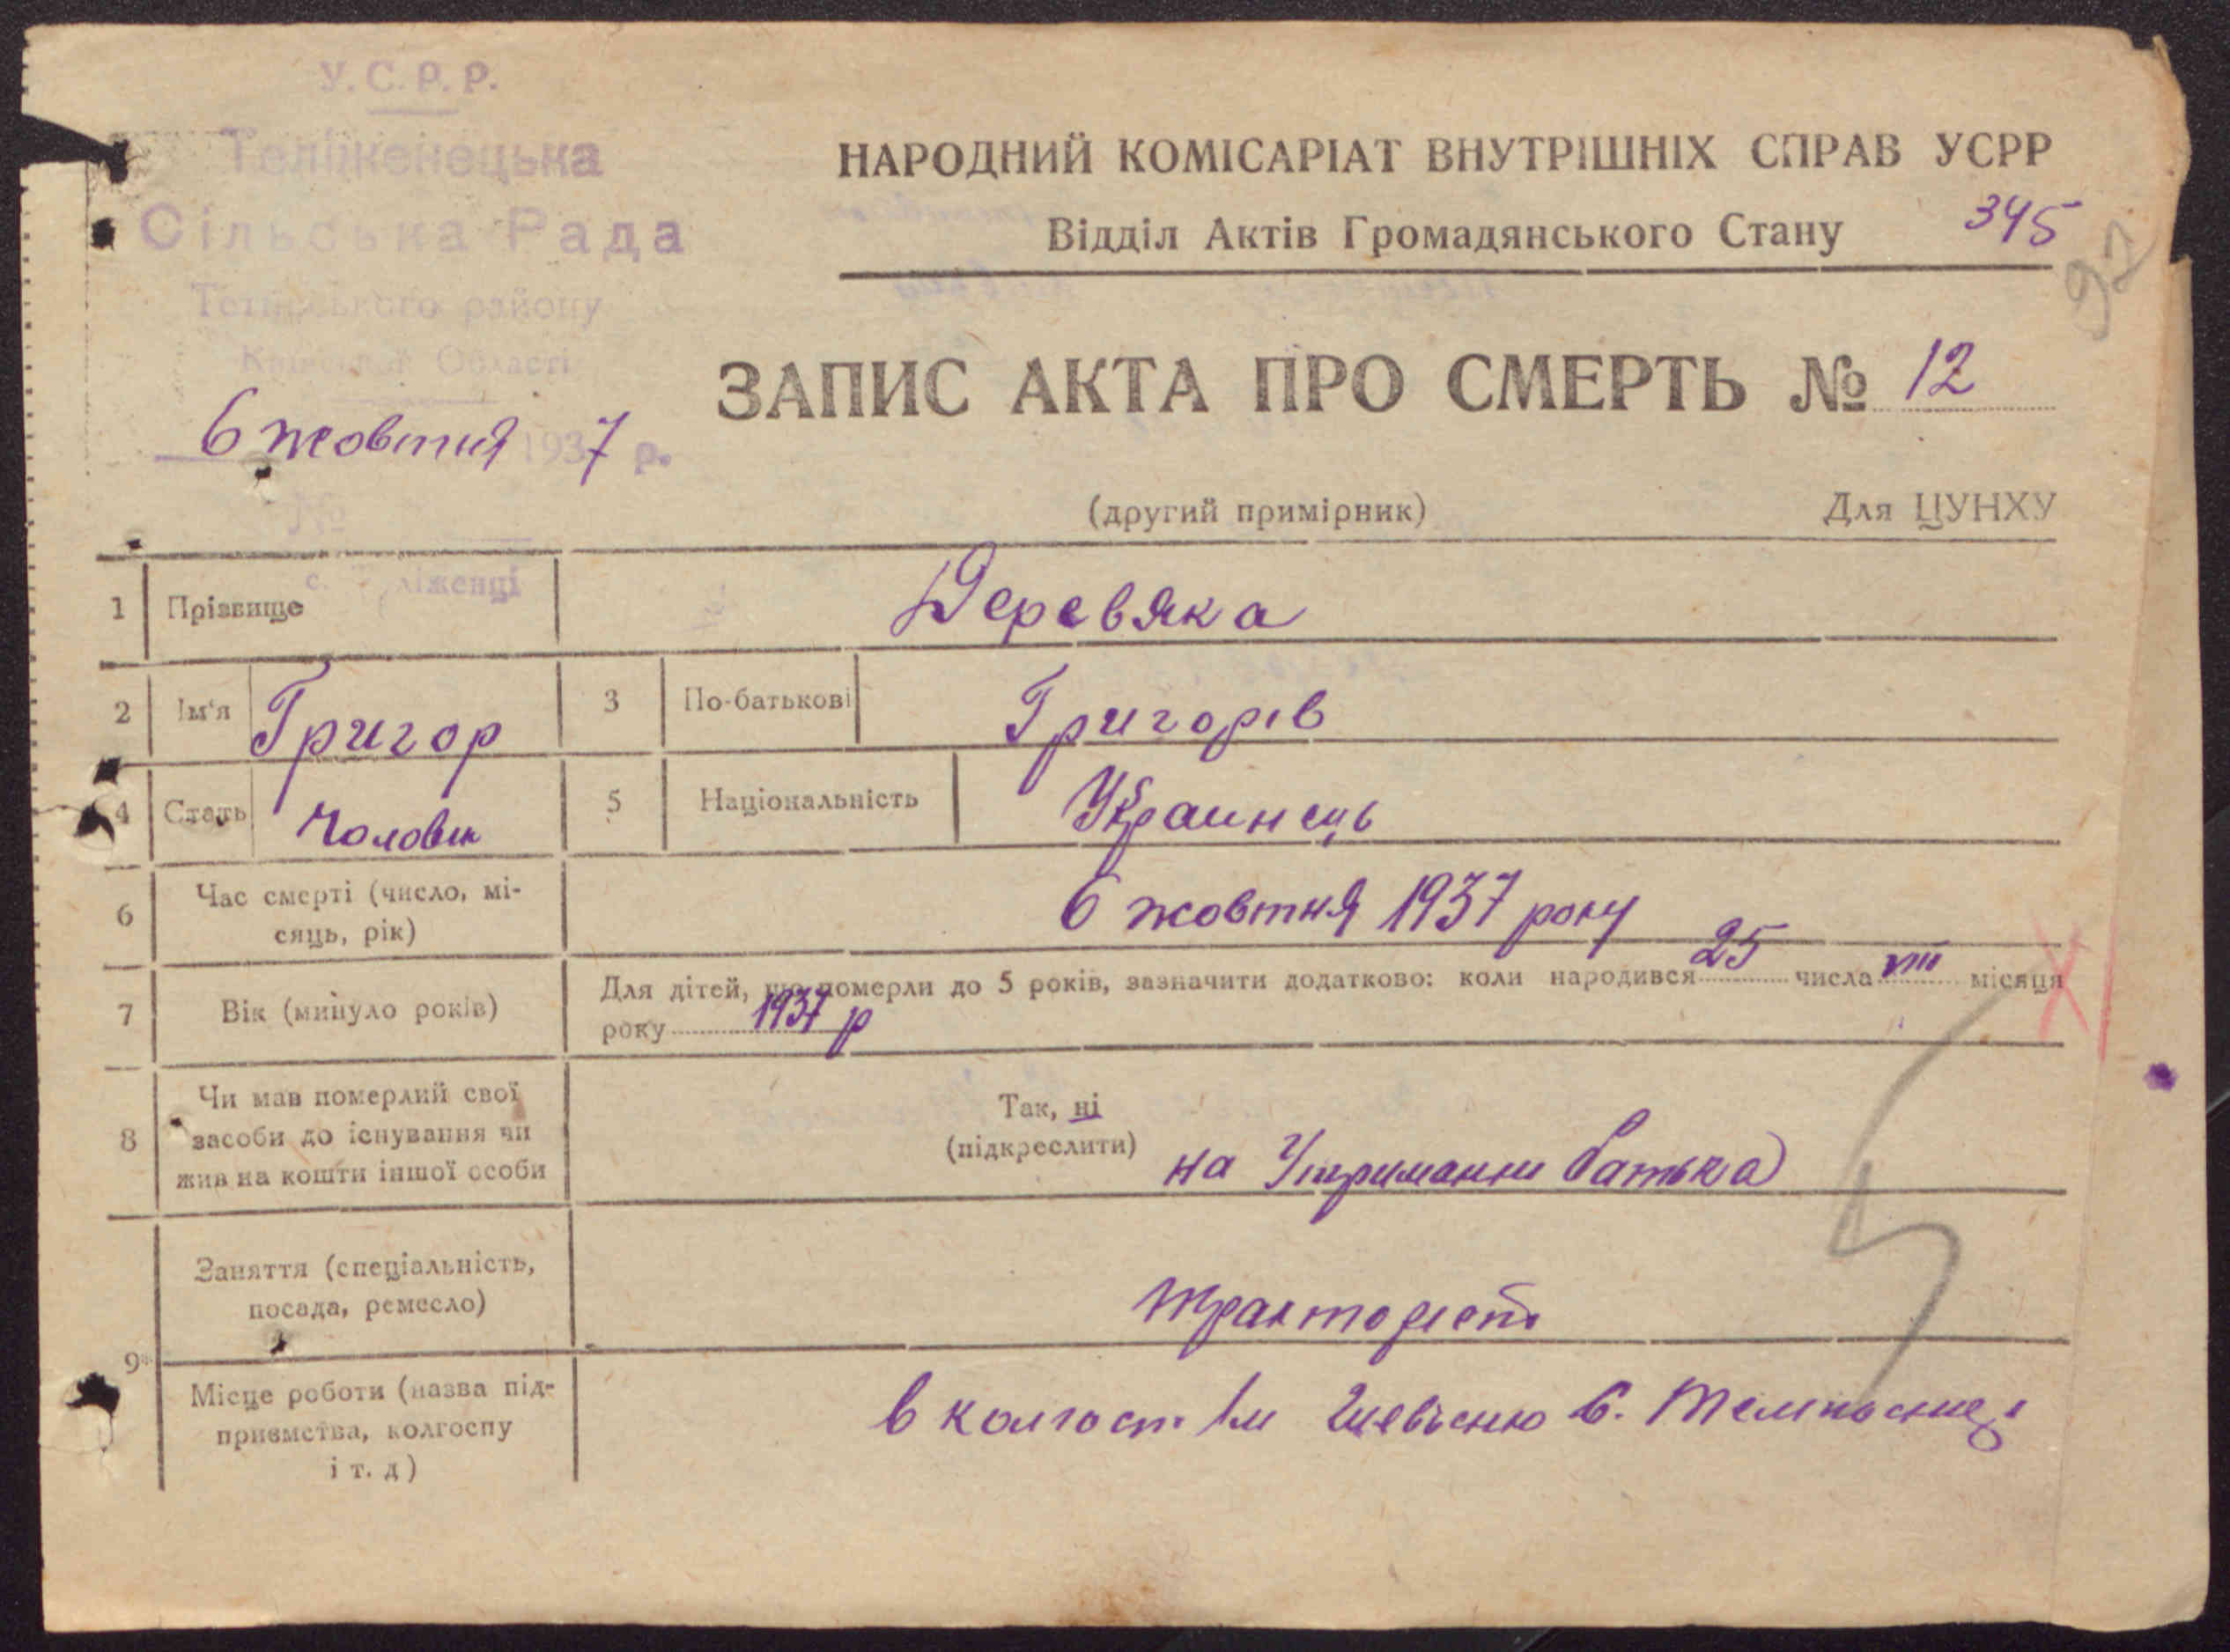 У.С.Р.Р.
Теліженецька
Сільська Рада
району
Области
6 жовтня 1937 р.
№
с. Теліженці
НАРОДНИЙ КОМІСАРІАТ ВНУТРІШНІХ СПРАВ УСРР
Відділ Актів Громадянського Стану 345
92
ЗАПИС АКТА ПРО СМЕРТЬ № 12
(другий примірник) Для ЦУНХУ
1 Прізвище Деревяка
2 Ім'я Григор 3 По-батькові Григорів
4 Стать Чоловік 5 Національність Украинець
6 Час смерті (число, мі-
сяць, рік) 6 жовтня 1937 року
7 Вік (минуло років) Для дітей, що померли до 5 років, зазначити додатково: коли народився 25 числа VIII місяця
року 1937 р
8 Чи мав померлий свої
засоби до існування чи
жив на кошти іншої особи
Так, ні
(підкреслити) на Утриманні батька
9
Заняття (спеціальність,
посада, ремесло) тракторіст
Місце роботи (назва під-
приємства, колгоспу
і т. д)
в колгосп Ім Шевченко с.